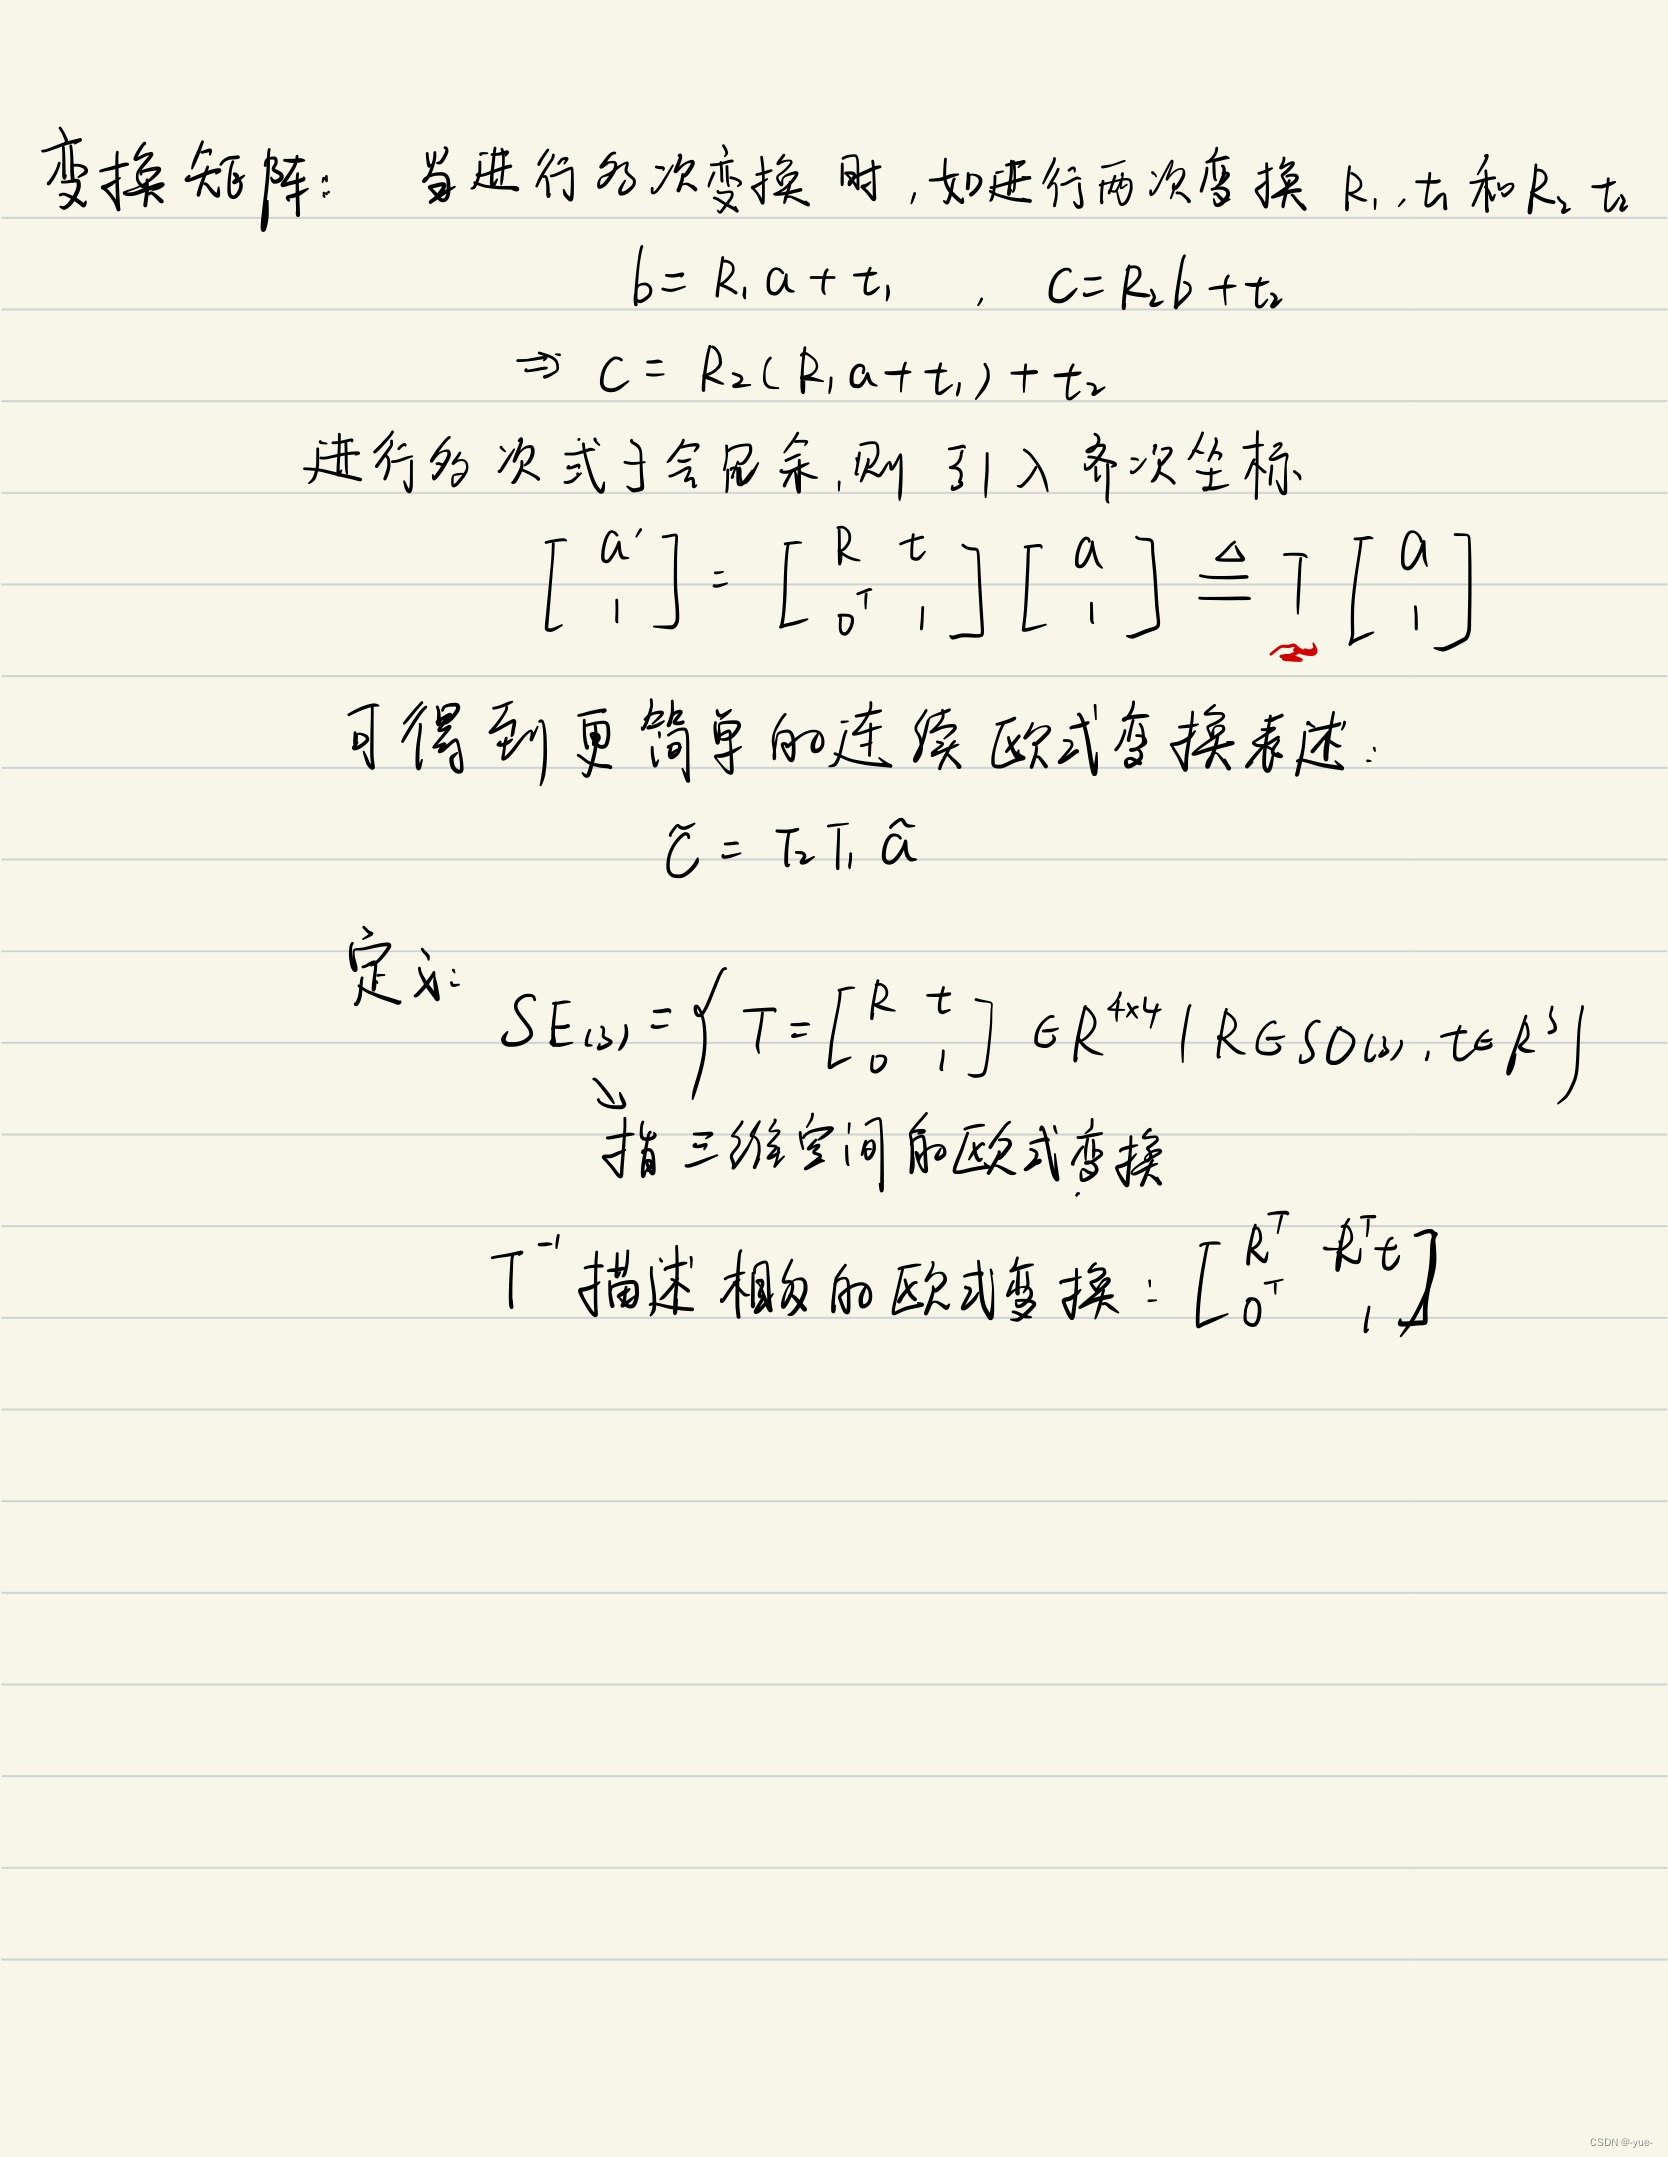 变换矩阵: 当进行多次变换时,如进行两次变换 R₁,t₁和R₂ t₂
b = R₁a + t₁ , c = R₂b + t₂
⇒ c = R₂(R₁a + t₁) + t₂
进行多次式子会冗余,则引入齐次坐标
[a' ; 1] = [R t ; 0ᵀ 1] [a ; 1] ≜ T [a ; 1]
可得到更简单的连续欧式变换表述:
c̃ = T₂T₁ã
定义:
SE(3) = { T = [R t ; 0 1] ∈ R⁴ˣ⁴ | R ∈ SO(3), t ∈ R³ }
↘
指三维空间的欧式变换
T⁻¹ 描述相反的欧式变换: [Rᵀ -Rᵀt ; 0ᵀ 1]
CSDN @-yue-